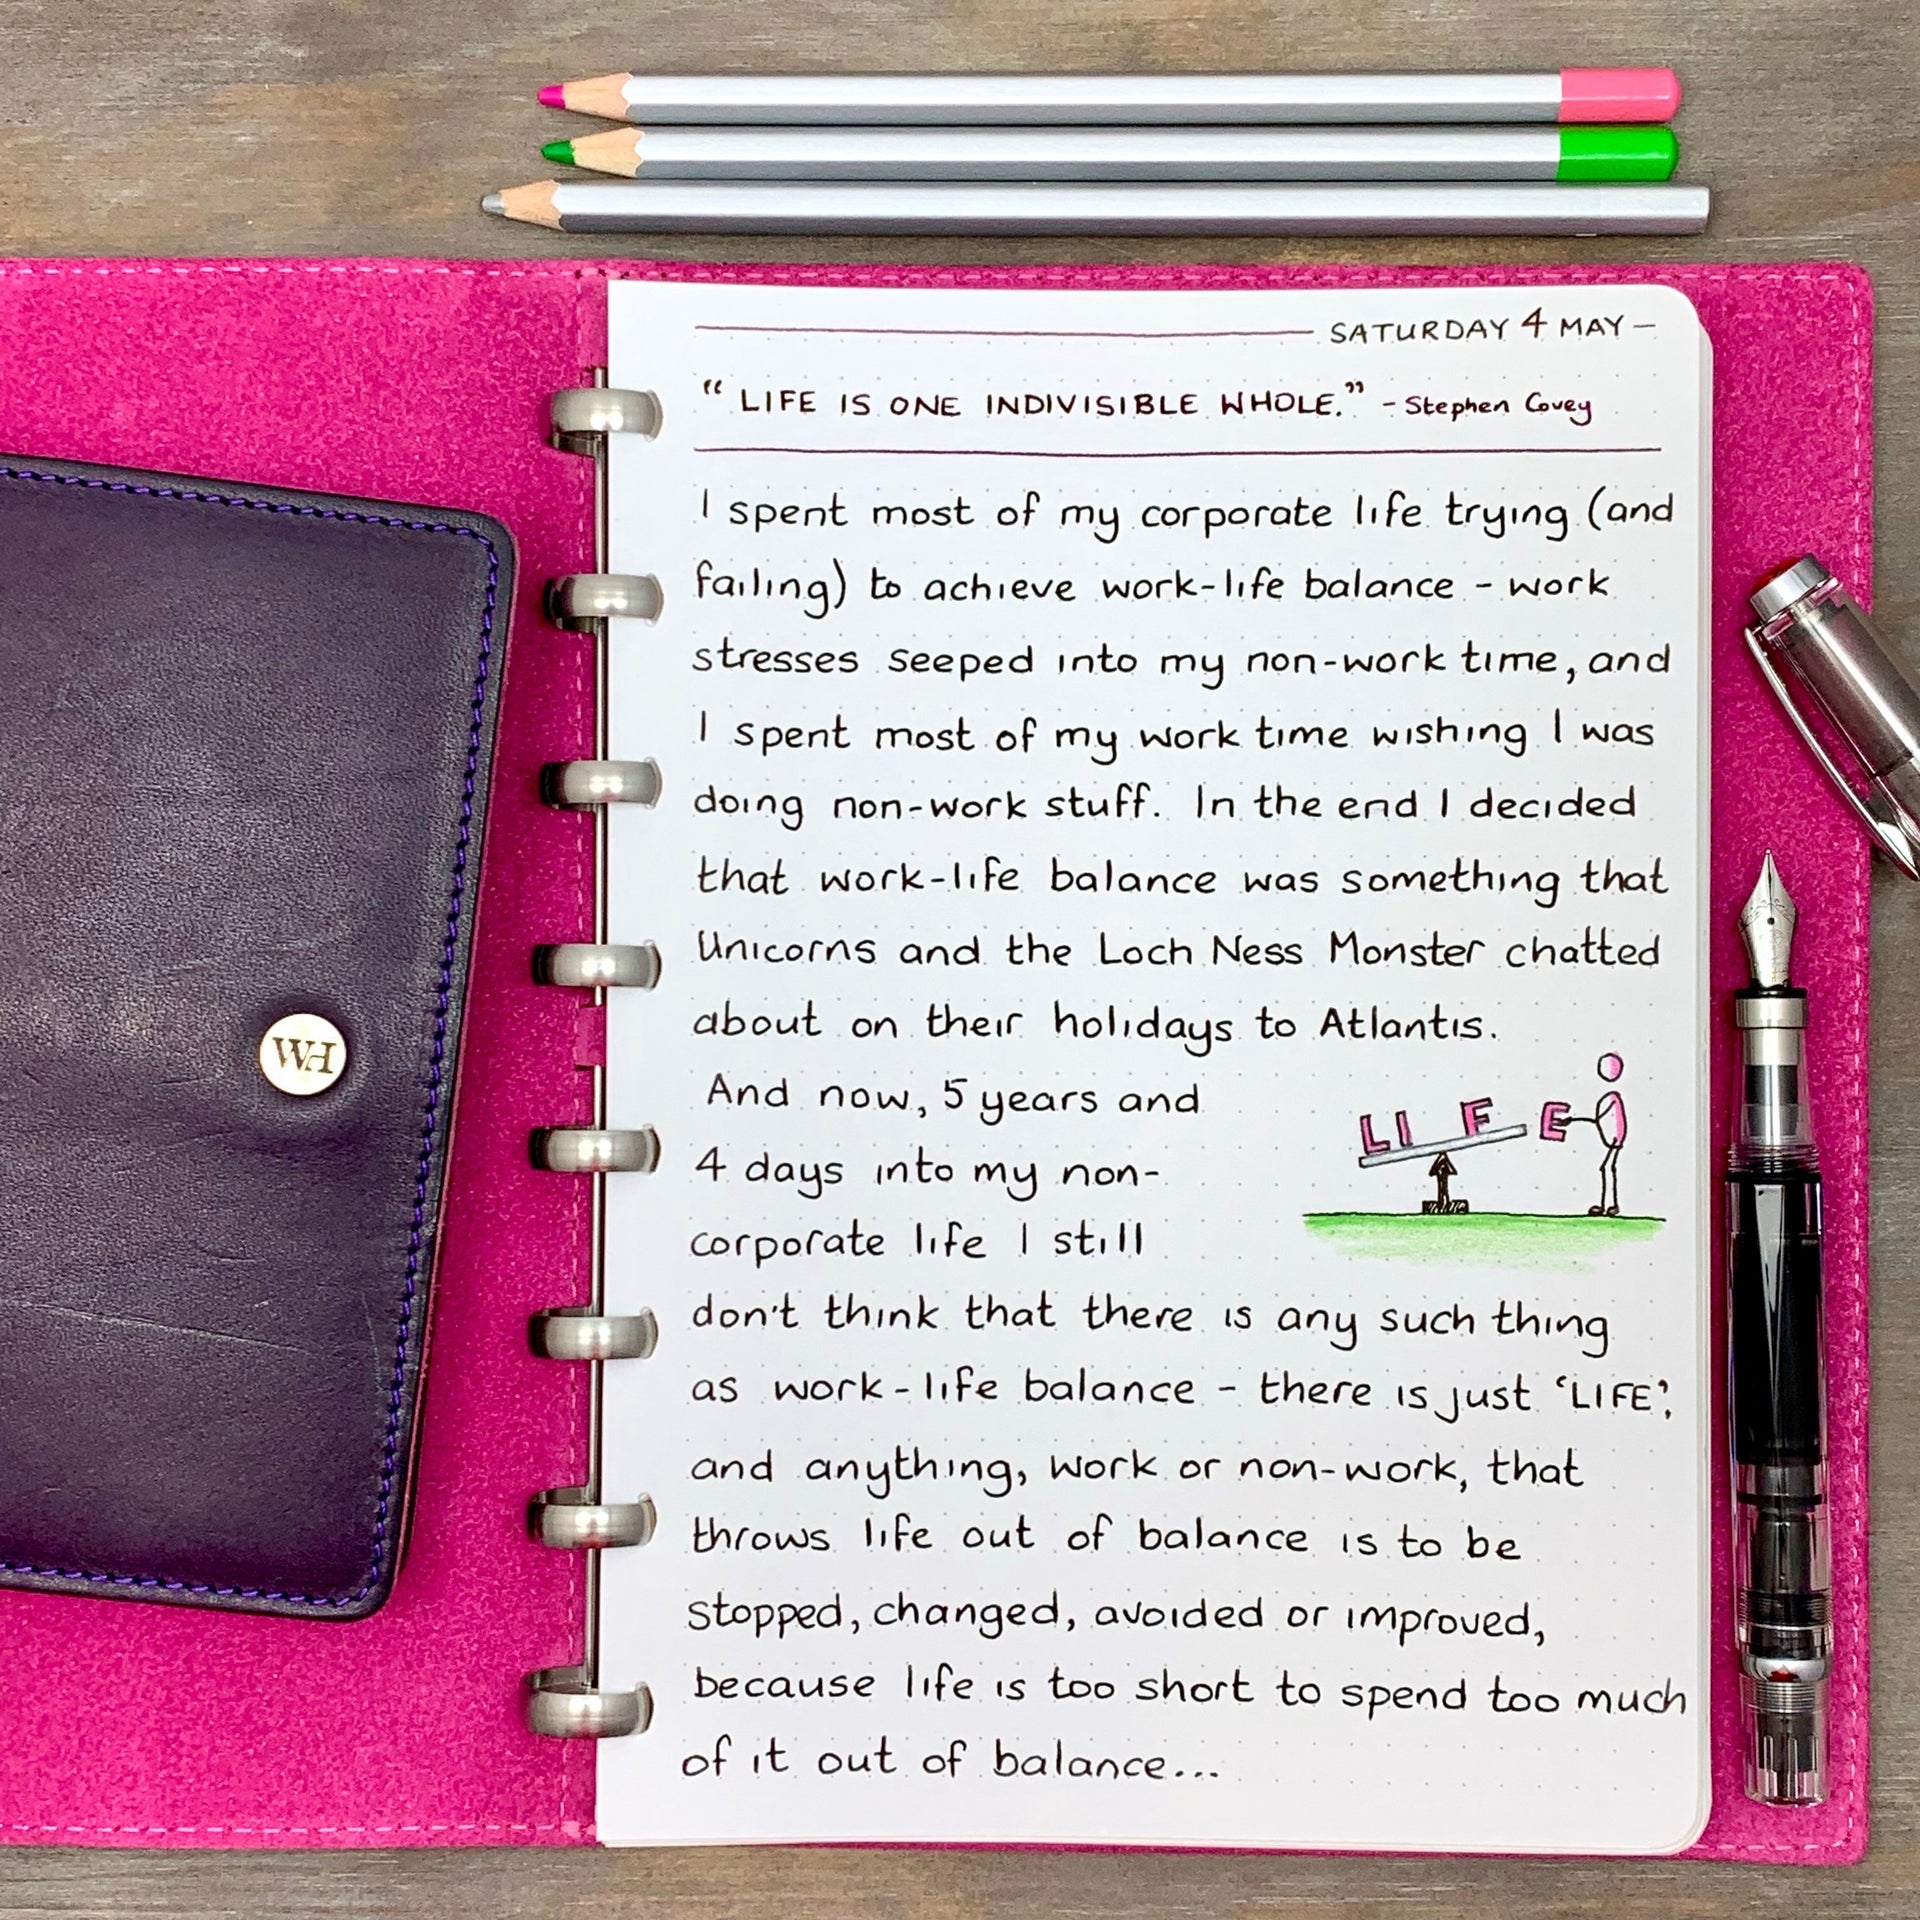 SATURDAY 4 MAY
"LIFE IS ONE INDIVISIBLE WHOLE." - Stephen Covey
I spent most of my corporate life trying (and
failing) to achieve work-life balance - work
stresses seeped into my non-work time, and
I spent most of my work time wishing I was
doing non-work stuff. In the end I decided
that work-life balance was something that
Unicorns and the Loch Ness Monster chatted
about on their holidays to Atlantis.
And now, 5 years and
4 days into my non-
corporate life I still
LIFE
don't think that there is any such thing
as work-life balance - there is just 'LIFE',
and anything, work or non-work, that
throws life out of balance is to be
stopped, changed, avoided or improved,
because life is too short to spend too much
of it out of balance...
WH